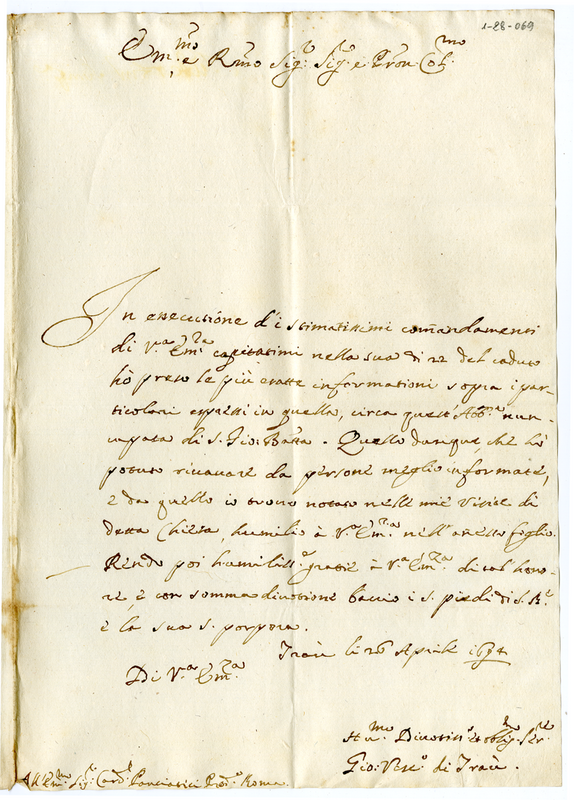 1-28-069
Em.mo e R.mo Sig.r Sig.r e Pron Col.mo
In essecutione d'i stimatissimi comandamenti
di V.a Em.za capitatimi nella sua di 22 del caduto
hò preso le più esatte informationi sopra i par-
ticolari espressi in quella, circa quest'Abb.a nun-
cupata di S. Gio: Batta. Quello dunque, che hò
potuto ricavare da persone meglio informate,
e da quello io trovo notato nelle mie Visite di
detta Chiesa, humilio à V.a Em.za nell'anesso foglio.
Rendo poi humiliss.e gratie à V.a Em.za di tal hono-
re, e con somma divotione baccio i s. piedi di S. B.e
e la sua s. porpora.
Traù li 26 Aprile 1694
Di V.a Em.za
Hu.mo Divotiss.o et obblig. Ser.re
Gio: Vesc.o di Traù.
All'Em.mo Sig.r Card. Panciatici Prod.o Roma.